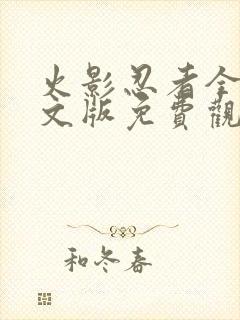 火影忍者全
文版免費觀
和冬春